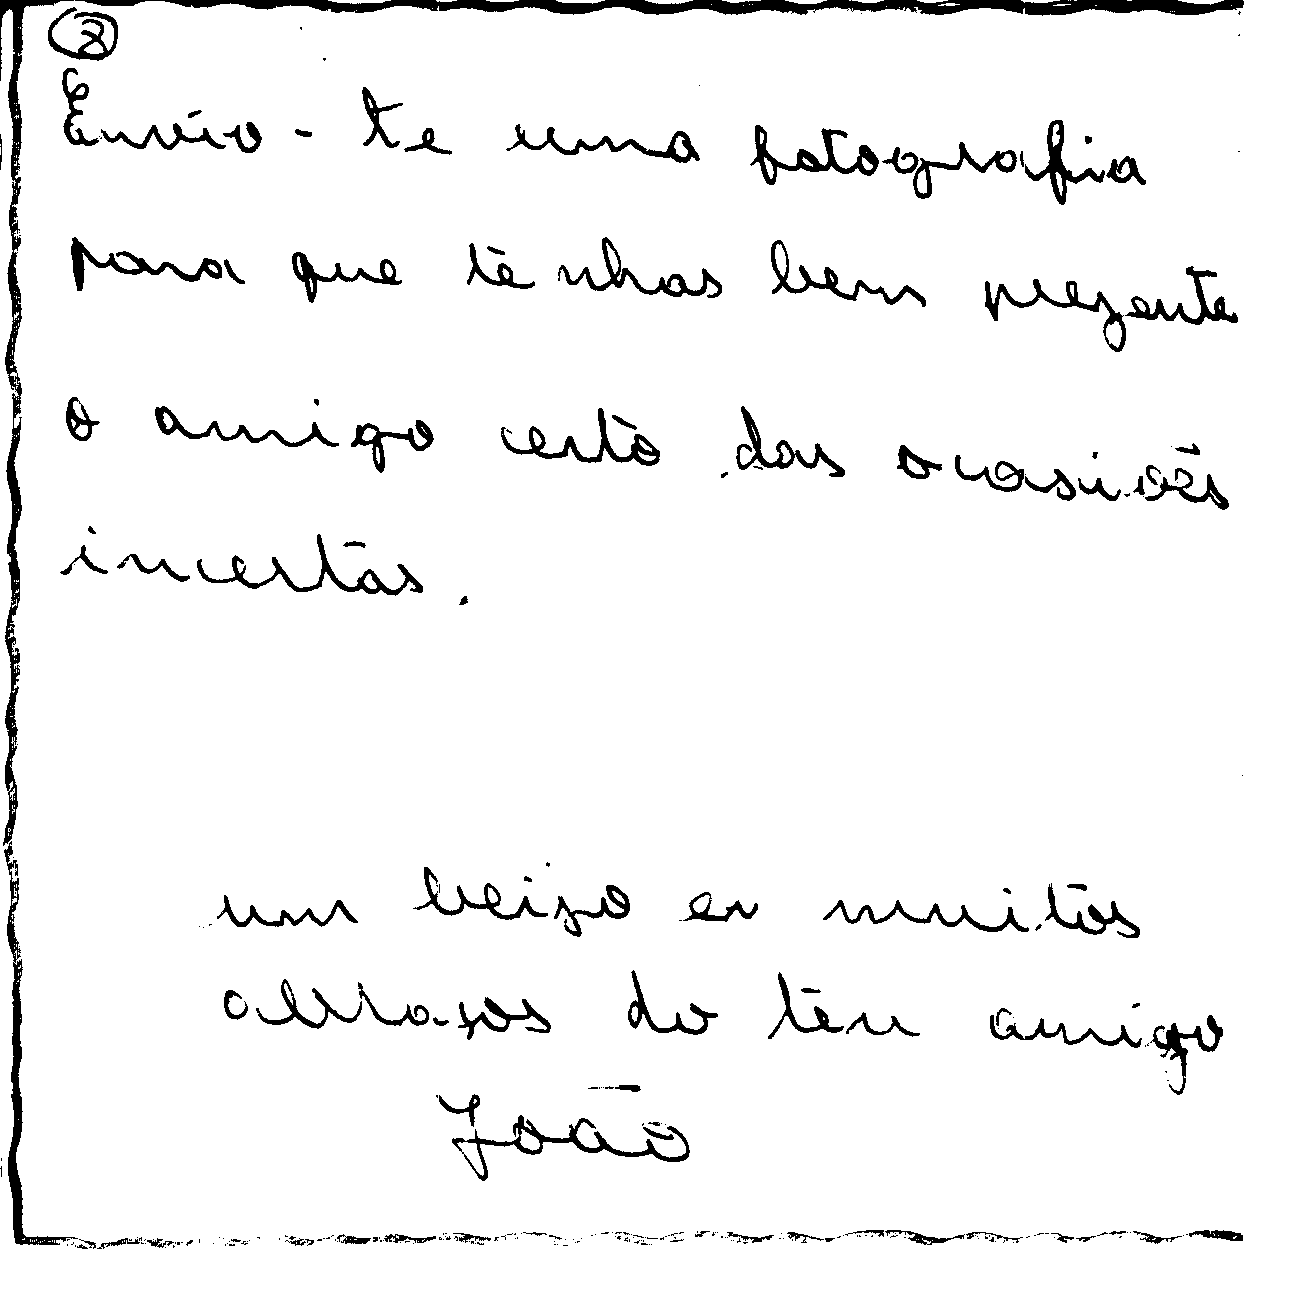 2
Envio-te uma fotografia
para que tenhas bem prezente
o amigo certo das ocasiões
incertas.
um beijo e muitos
abraços do teu amigo
João